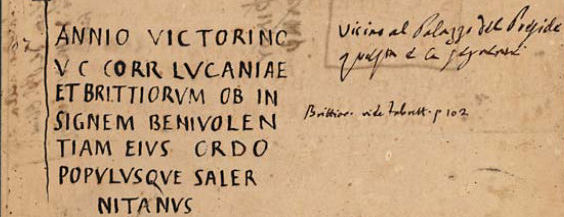 ANNIO VICTORINO
V C CORR LVCANIAE
ET BRITTIORVM OB IN
SIGNEM BENIVOLEN
TIAM EIVS ORDO
POPVLVSQVE SALER
NITANVS
Vicino al Palazzo del Preside
questa è la
Brittior. vide Fabrett. p 102